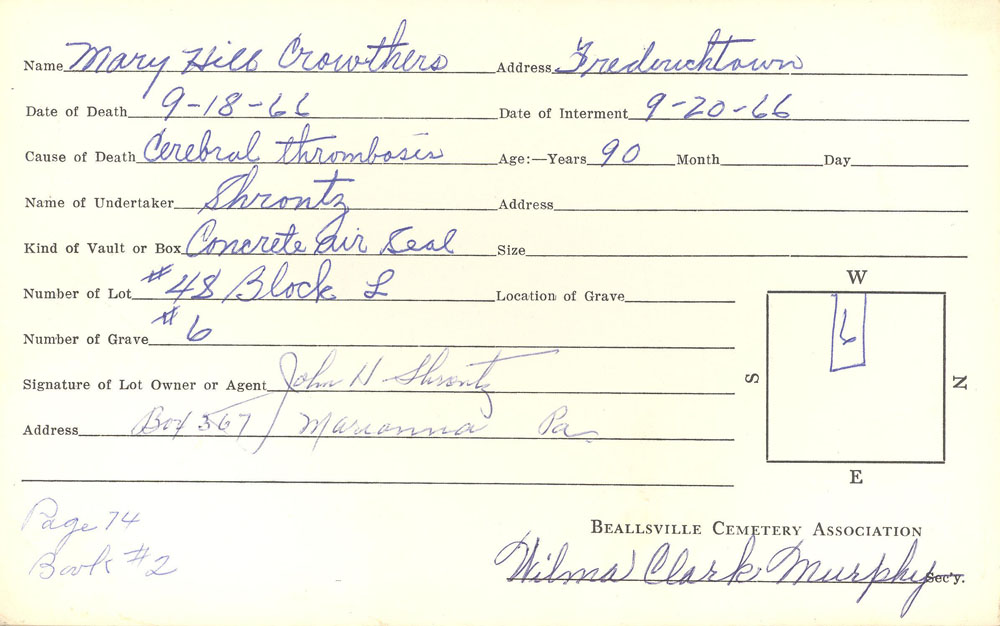 Name Mary Hill Crowthers Address Fredericktown
Date of Death 9-18-66 Date of Interment 9-20-66
Cause of Death Cerebral thrombosis Age:—Years 90 Month Day
Name of Undertaker Shrontz Address
Kind of Vault or Box Concrete Air Seal Size
Number of Lot #48 Block L Location of Grave
Number of Grave #6
Signature of Lot Owner or Agent John H Shrontz
Address Box 567 Marianna Pa.
W
S 6 N
E
Page 74
Book #2
BEALLSVILLE CEMETERY ASSOCIATION
Wilma Clark Murphy Sec'y.